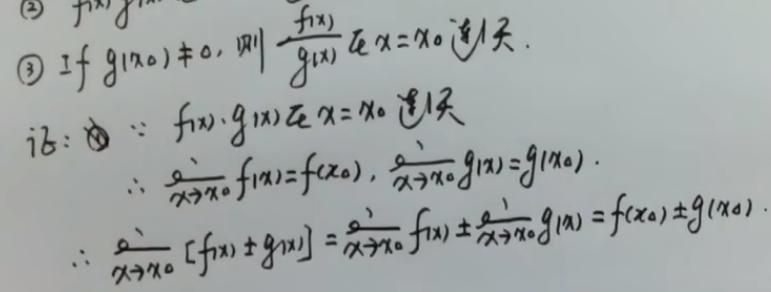 ② f(x)g(x)
③ If g(x₀)≠0, 则 f(x)/g(x) 在 x=x₀ 连续.
证: ① ∵ f(x)·g(x) 在 x=x₀ 连续
∴ lim x→x₀ f(x)=f(x₀), lim x→x₀ g(x)=g(x₀).
∴ lim x→x₀ [f(x)±g(x)] = lim x→x₀ f(x) ± lim x→x₀ g(x) = f(x₀)±g(x₀).